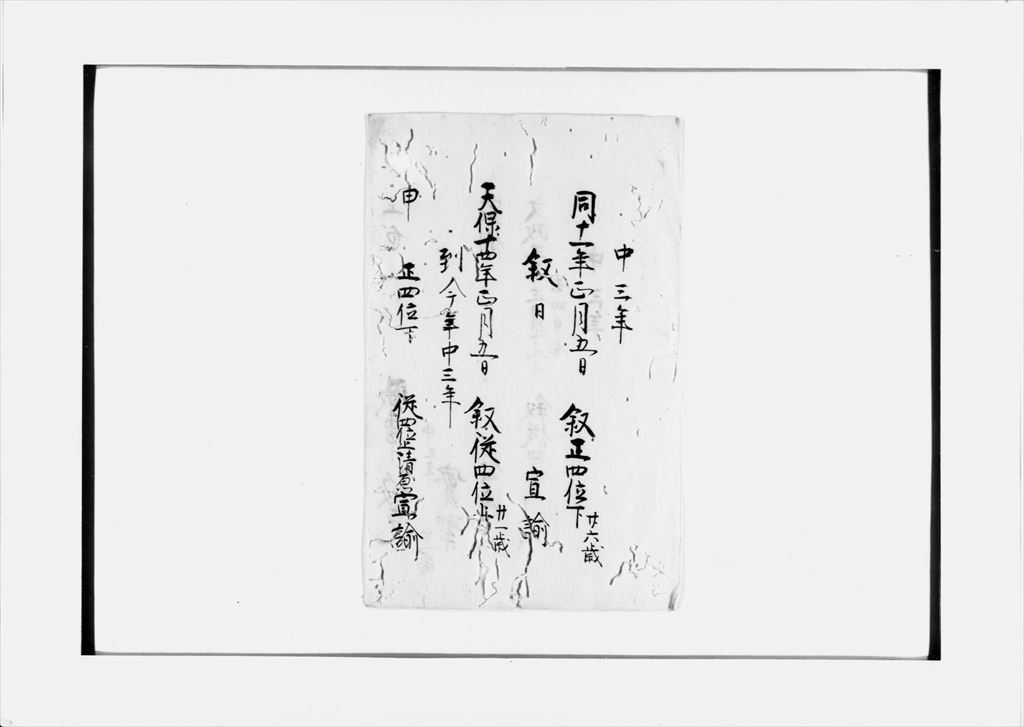 中三年
同十一年正月五日 叙正四位下廿六歳
叙日 宣諭
天保十四年正月五日 叙従四位上廿一歳
到今年中三年
申 正四位下 従四位上清原宣諭